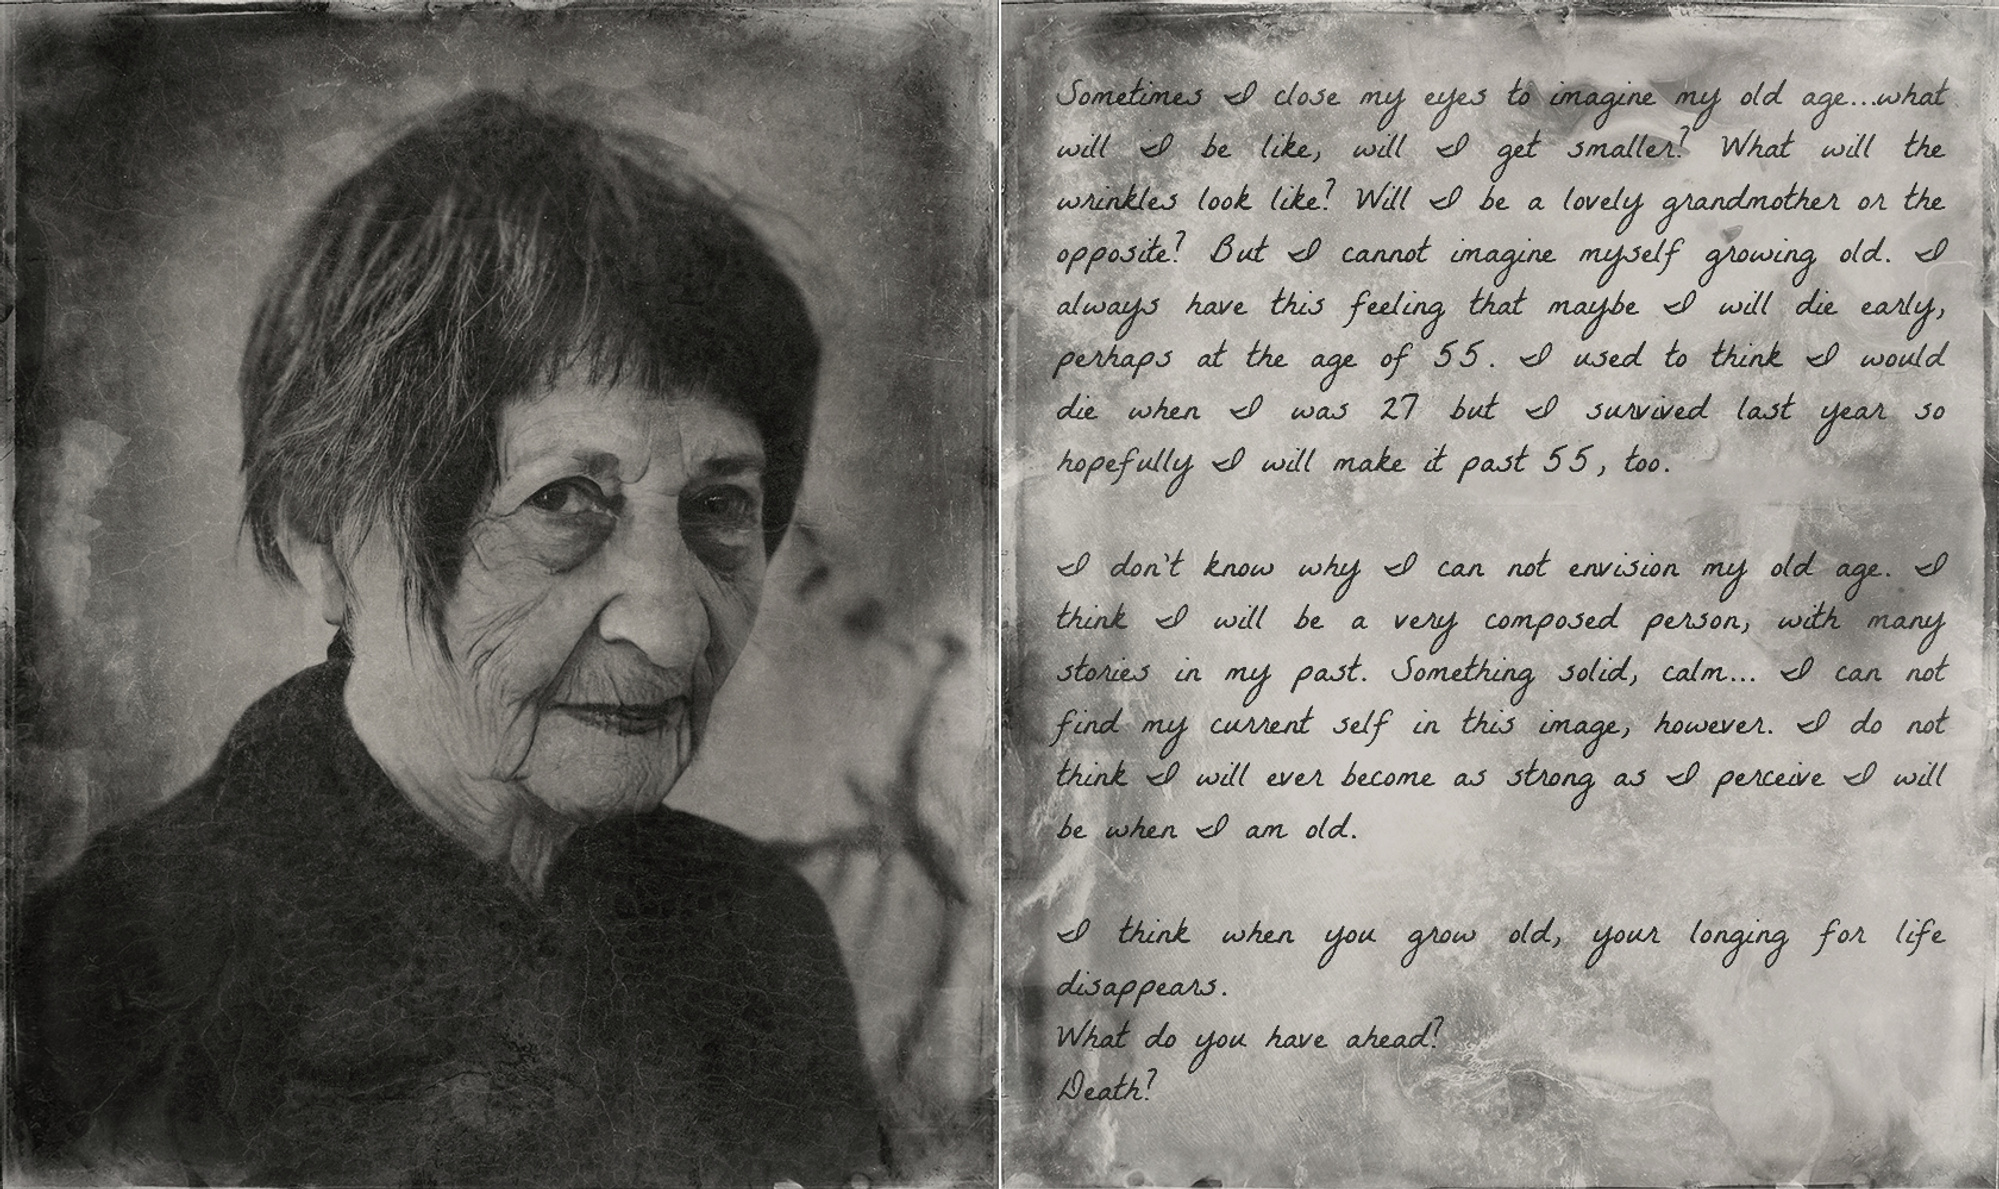 Sometimes I close my eyes to imagine my old age...what
will I be like, will I get smaller? What will the
wrinkles look like? Will I be a lovely grandmother or the
opposite? But I cannot imagine myself growing old. I
always have this feeling that maybe I will die early,
perhaps at the age of 55. I used to think I would
die when I was 27 but I survived last year so
hopefully I will make it past 55, too.
I don't know why I can not envision my old age. I
think I will be a very composed person, with many
stories in my past. Something solid, calm... I can not
find my current self in this image, however. I do not
think I will ever become as strong as I perceive I will
be when I am old.
I think when you grow old, your longing for life
disappears.
What do you have ahead?
Death?